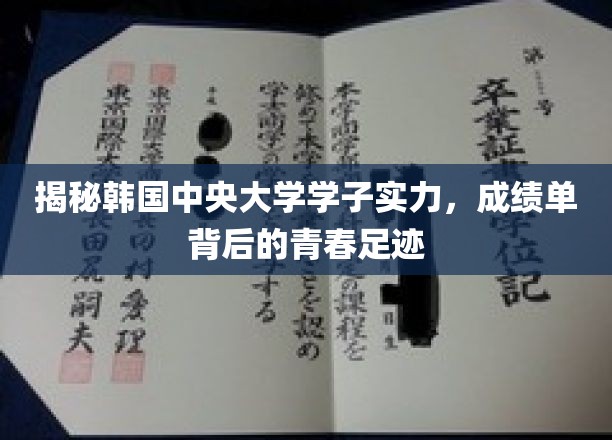 揭秘韩国中央大学学子实力，成绩单
背后的青春足迹
第 号
卒業証 学位記
本学商学部 定の課程を
日生
修めて本学 ことを認め
学士(商学)の学 する
平成
東京国際大学 田村 理
東京国際大 長田尻嗣夫